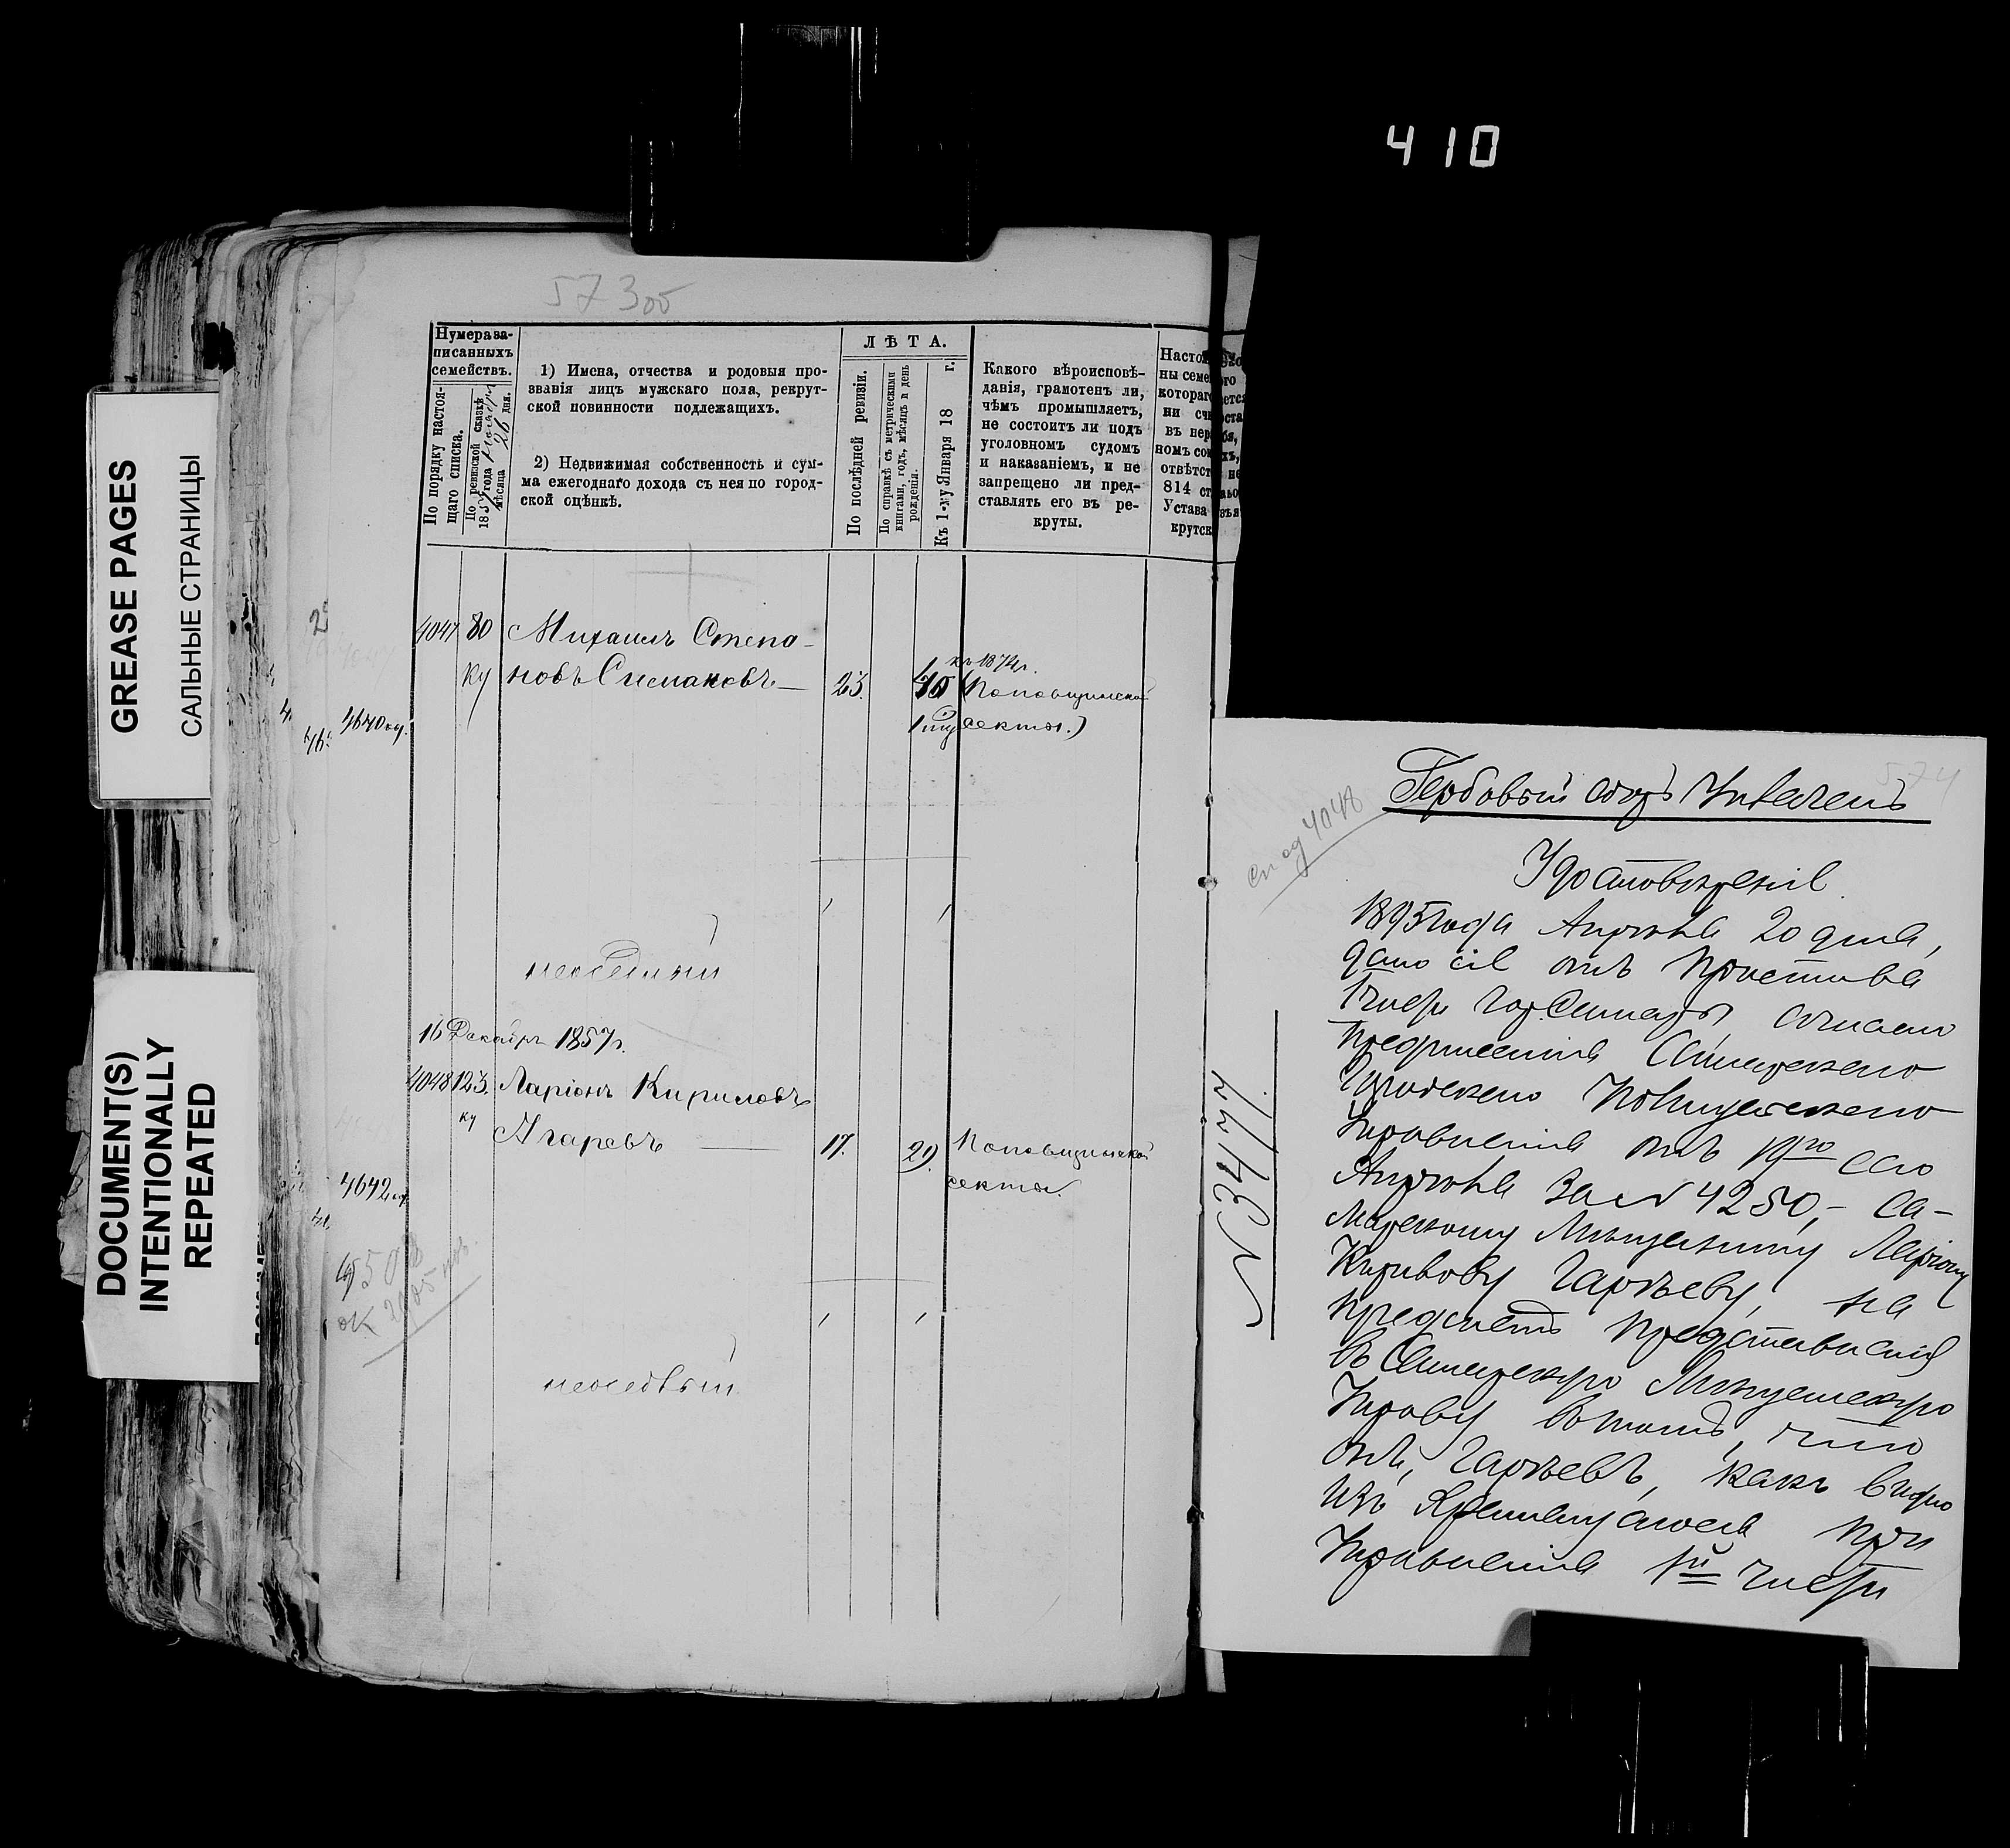 410
573об
GREASE PAGES
САЛЬНЫЕ СТРАНИЦЫ
DOCUMENT(S)
INTENTIONALLY
REPEATED
Нумера за-
писанныхъ
семействъ.
По порядку настоя-
щаго списка.
По ревизской сказкѣ
года
мѣсяца 26 дня.
1) Имена, отчества и родовыя про-
званія лицъ мужскаго пола, рекрут-
ской повинности подлежащихъ.
2) Недвижимая собственность и сум-
ма ежегоднаго дохода съ нея по город-
ской оцѣнкѣ.
ЛѢТА.
По послѣдней ревизіи.
По справкѣ съ метрическими
книгами, годъ, мѣсяцъ и день
рожденія.
Къ 1-му Января 18 г.
Какого вѣроисповѣ-
данія, грамотенъ ли,
чѣмъ промышляетъ,
не состоитъ ли подъ
уголовномъ судомъ
и наказаніемъ, и не
запрещено ли пред-
ставлять его въ ре-
круты.
4047 80 Михаилъ Степа-
ку новъ Симаковъ 23.
къ 1874г.
Поповщинской
секты.)
4640
неоседлый
16 Декабря 1857г.
4048 123. Ларіонъ Кириловъ
ку Агаревъ 17. 29. Поповщинской
секты.
4642
неоседлый
574
Гербовый сборъ Уплаченъ
4048
№3477.
Удостовѣреніе
1895 года Апрѣля 20 дня,
дано сіе отъ Пристава
1 части гор. Самары, согласно
предписанія Самарскаго
Городскаго Полицейскаго
Управленія отъ 19го сего
Апрѣля за № 4250, - Са-
марскому Мѣщанину Ларіону
Кирилову Гарѣеву, на
предметъ представленія
въ Самарскую Мѣщанскую
Управу въ томъ, что
онъ, Гарѣевъ, какъ видно
изъ при
Управленіи 1й части